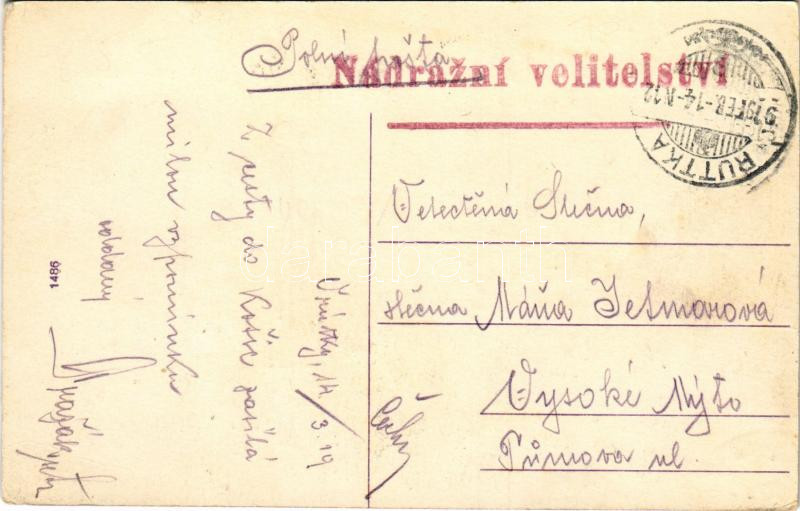 Polní pošta
Nádražní velitelství
RUTTKA
919 FEB.-14.-N.12
Vrútky, 14/3.19
Z cesty do Košic zasílá
milou vzpomínku
oddaný
1486
Velectěná Slečna,
slečna Máňa Jetmarová
Vysoké Mýto
Tůmova ul.
Čechy
darabanth